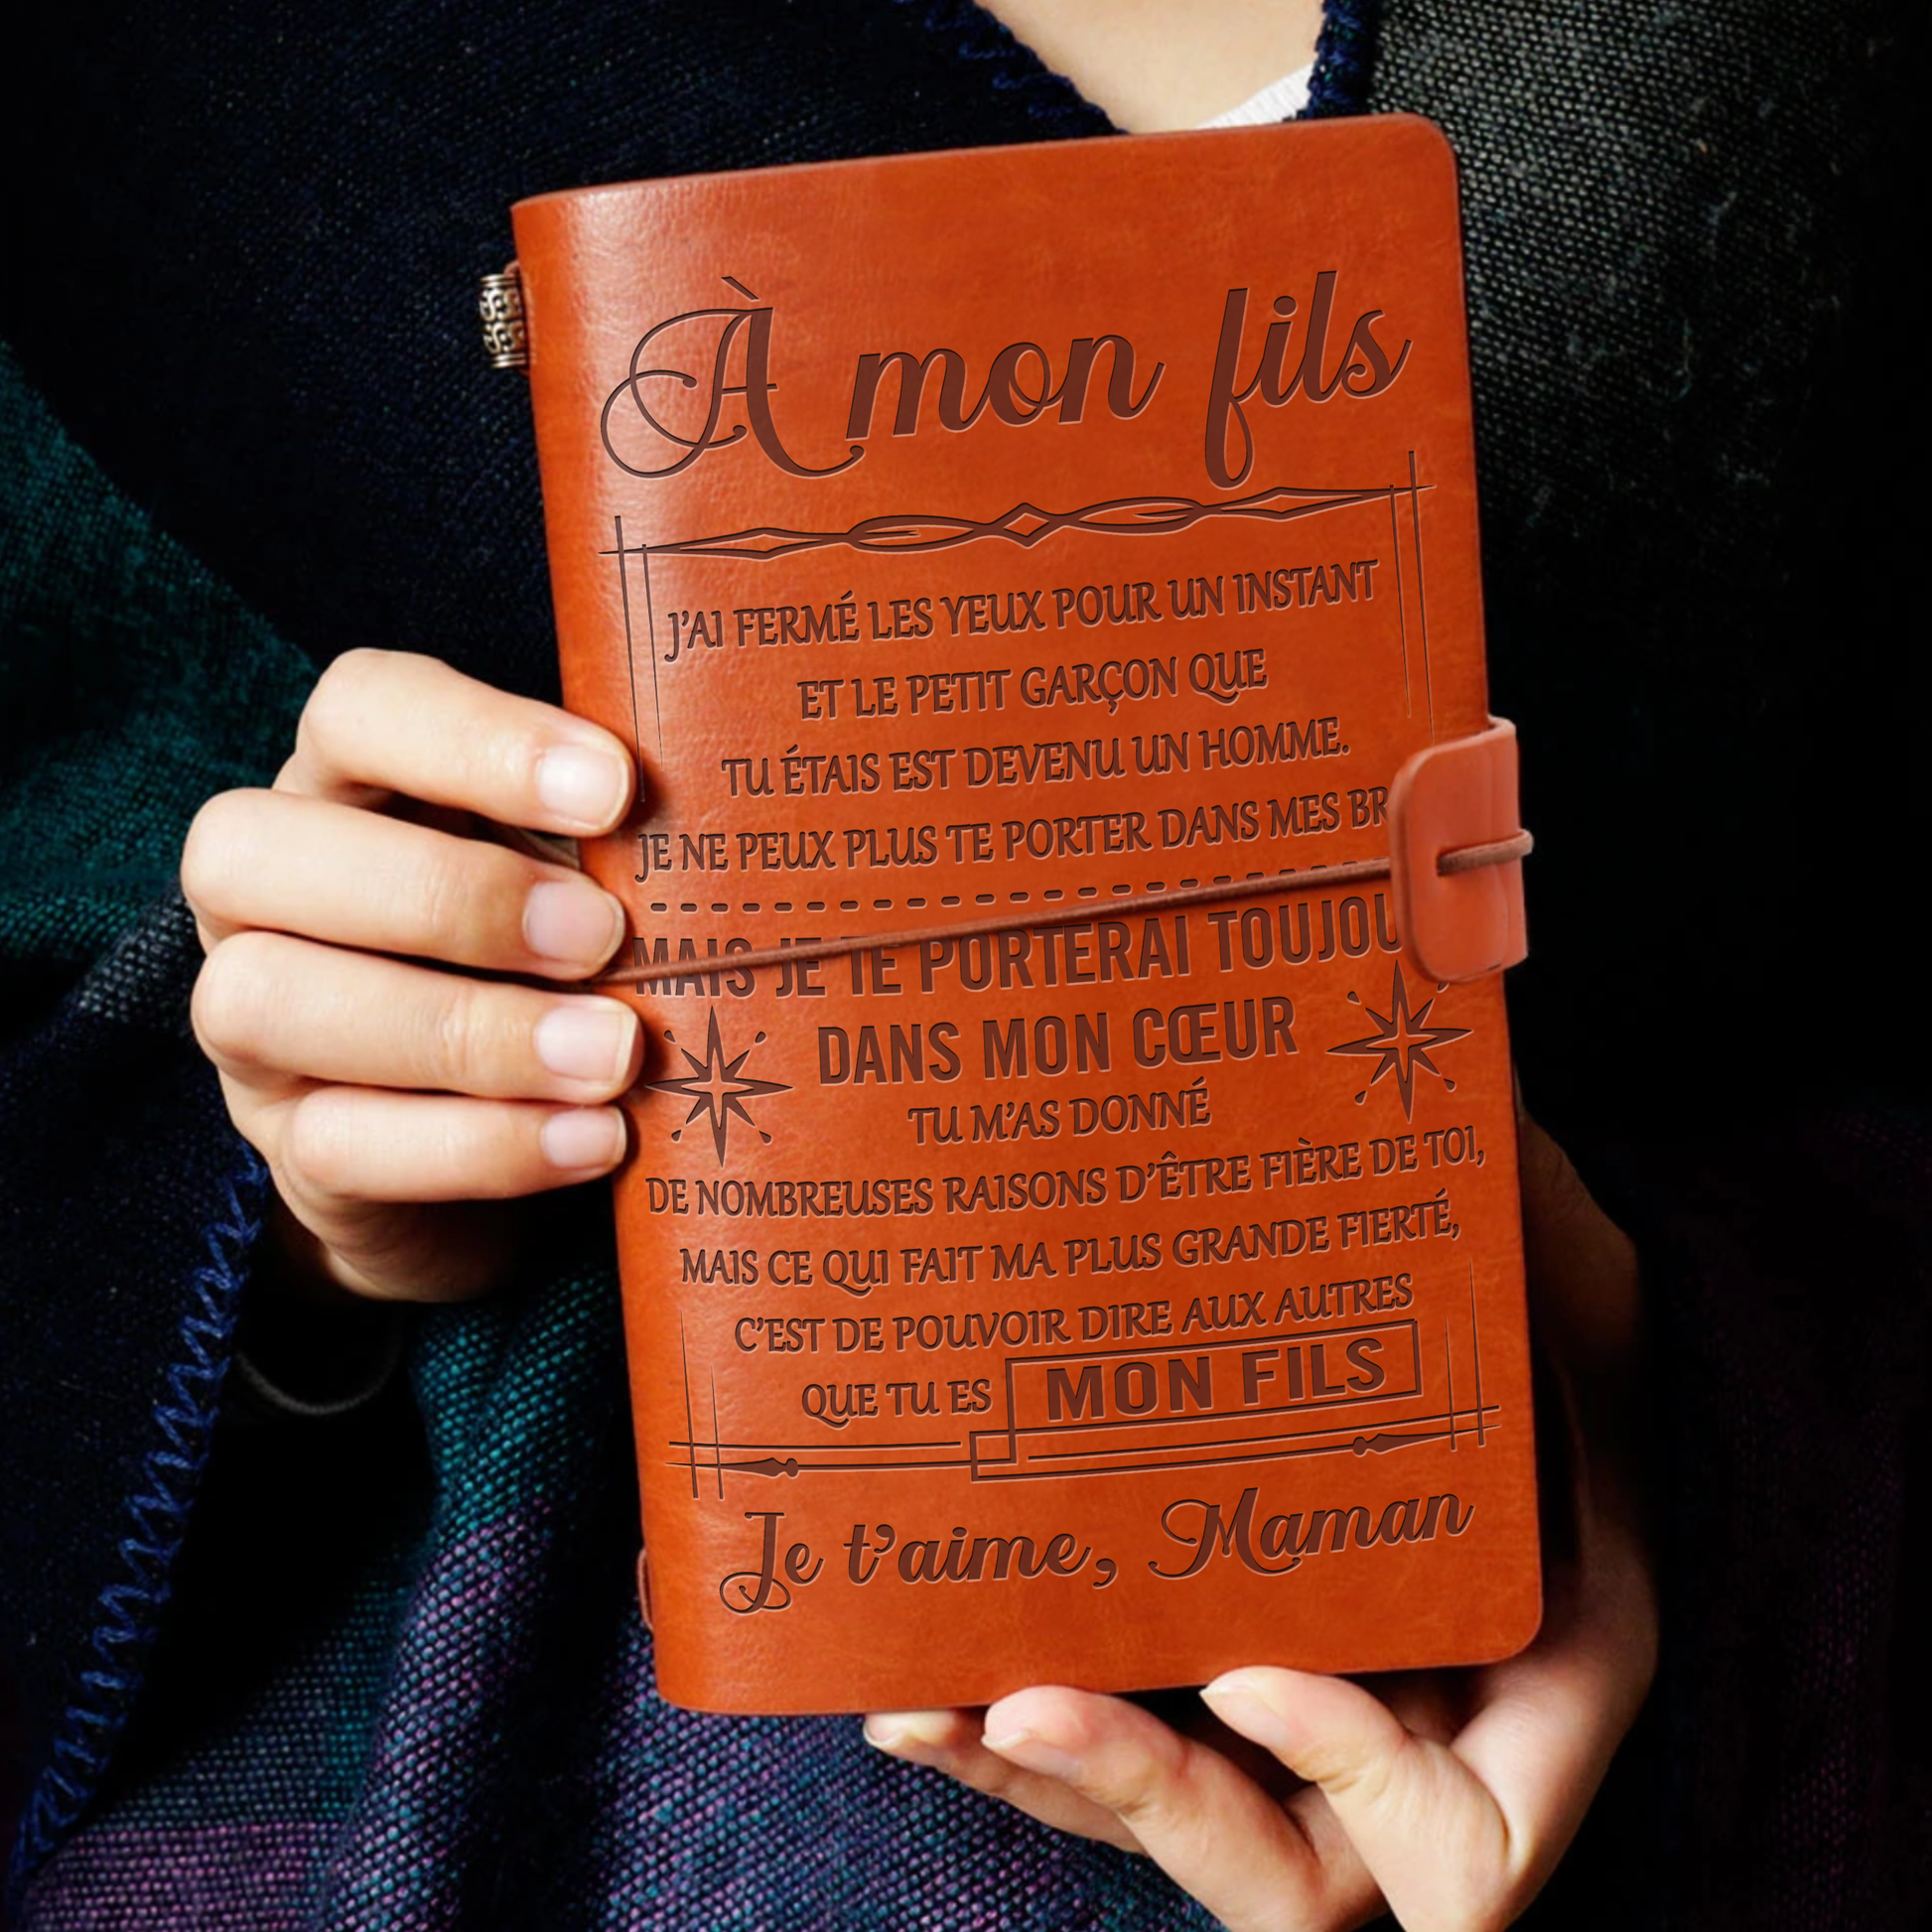 À mon fils
J'AI FERMÉ LES YEUX POUR UN INSTANT
ET LE PETIT GARÇON QUE
TU ÉTAIS EST DEVENU UN HOMME.
JE NE PEUX PLUS TE PORTER DANS MES BR
MAIS JE TE PORTERAI TOUJOU
DANS MON CŒUR
TU M'AS DONNÉ
DE NOMBREUSES RAISONS D'ÊTRE FIÈRE DE TOI,
MAIS CE QUI FAIT MA PLUS GRANDE FIERTÉ,
C'EST DE POUVOIR DIRE AUX AUTRES
QUE TU ES MON FILS
Je t'aime, Maman